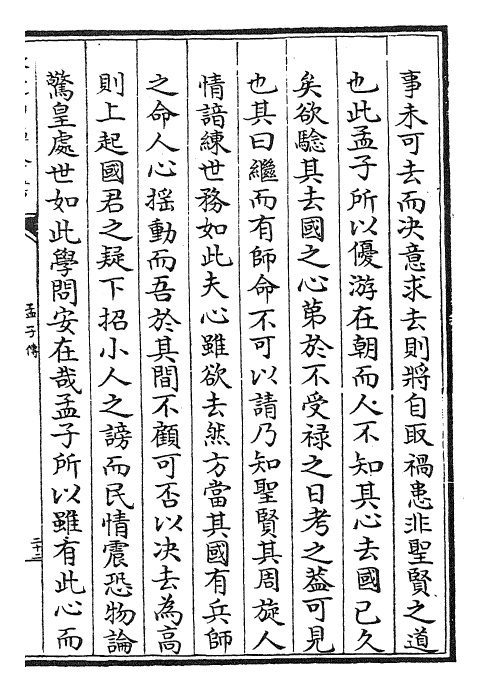 事未可去而决意求去則將自取禍患非聖賢之道
也此孟子所以優游在朝而人不知其心去國已久
矣欲驗其去國之心苐於不受禄之日考之葢可見
也其曰繼而有師命不可以請乃知聖賢其周旋人
情諳練世務如此夫心雖欲去然方當其國有兵師
之命人心揺動而吾於其間不顧可否以决去為高
則上起國君之疑下招小人之謗而民情震恐物論
驚皇處世如此學問安在哉孟子所以雖有此心而
孟子傳
二十三